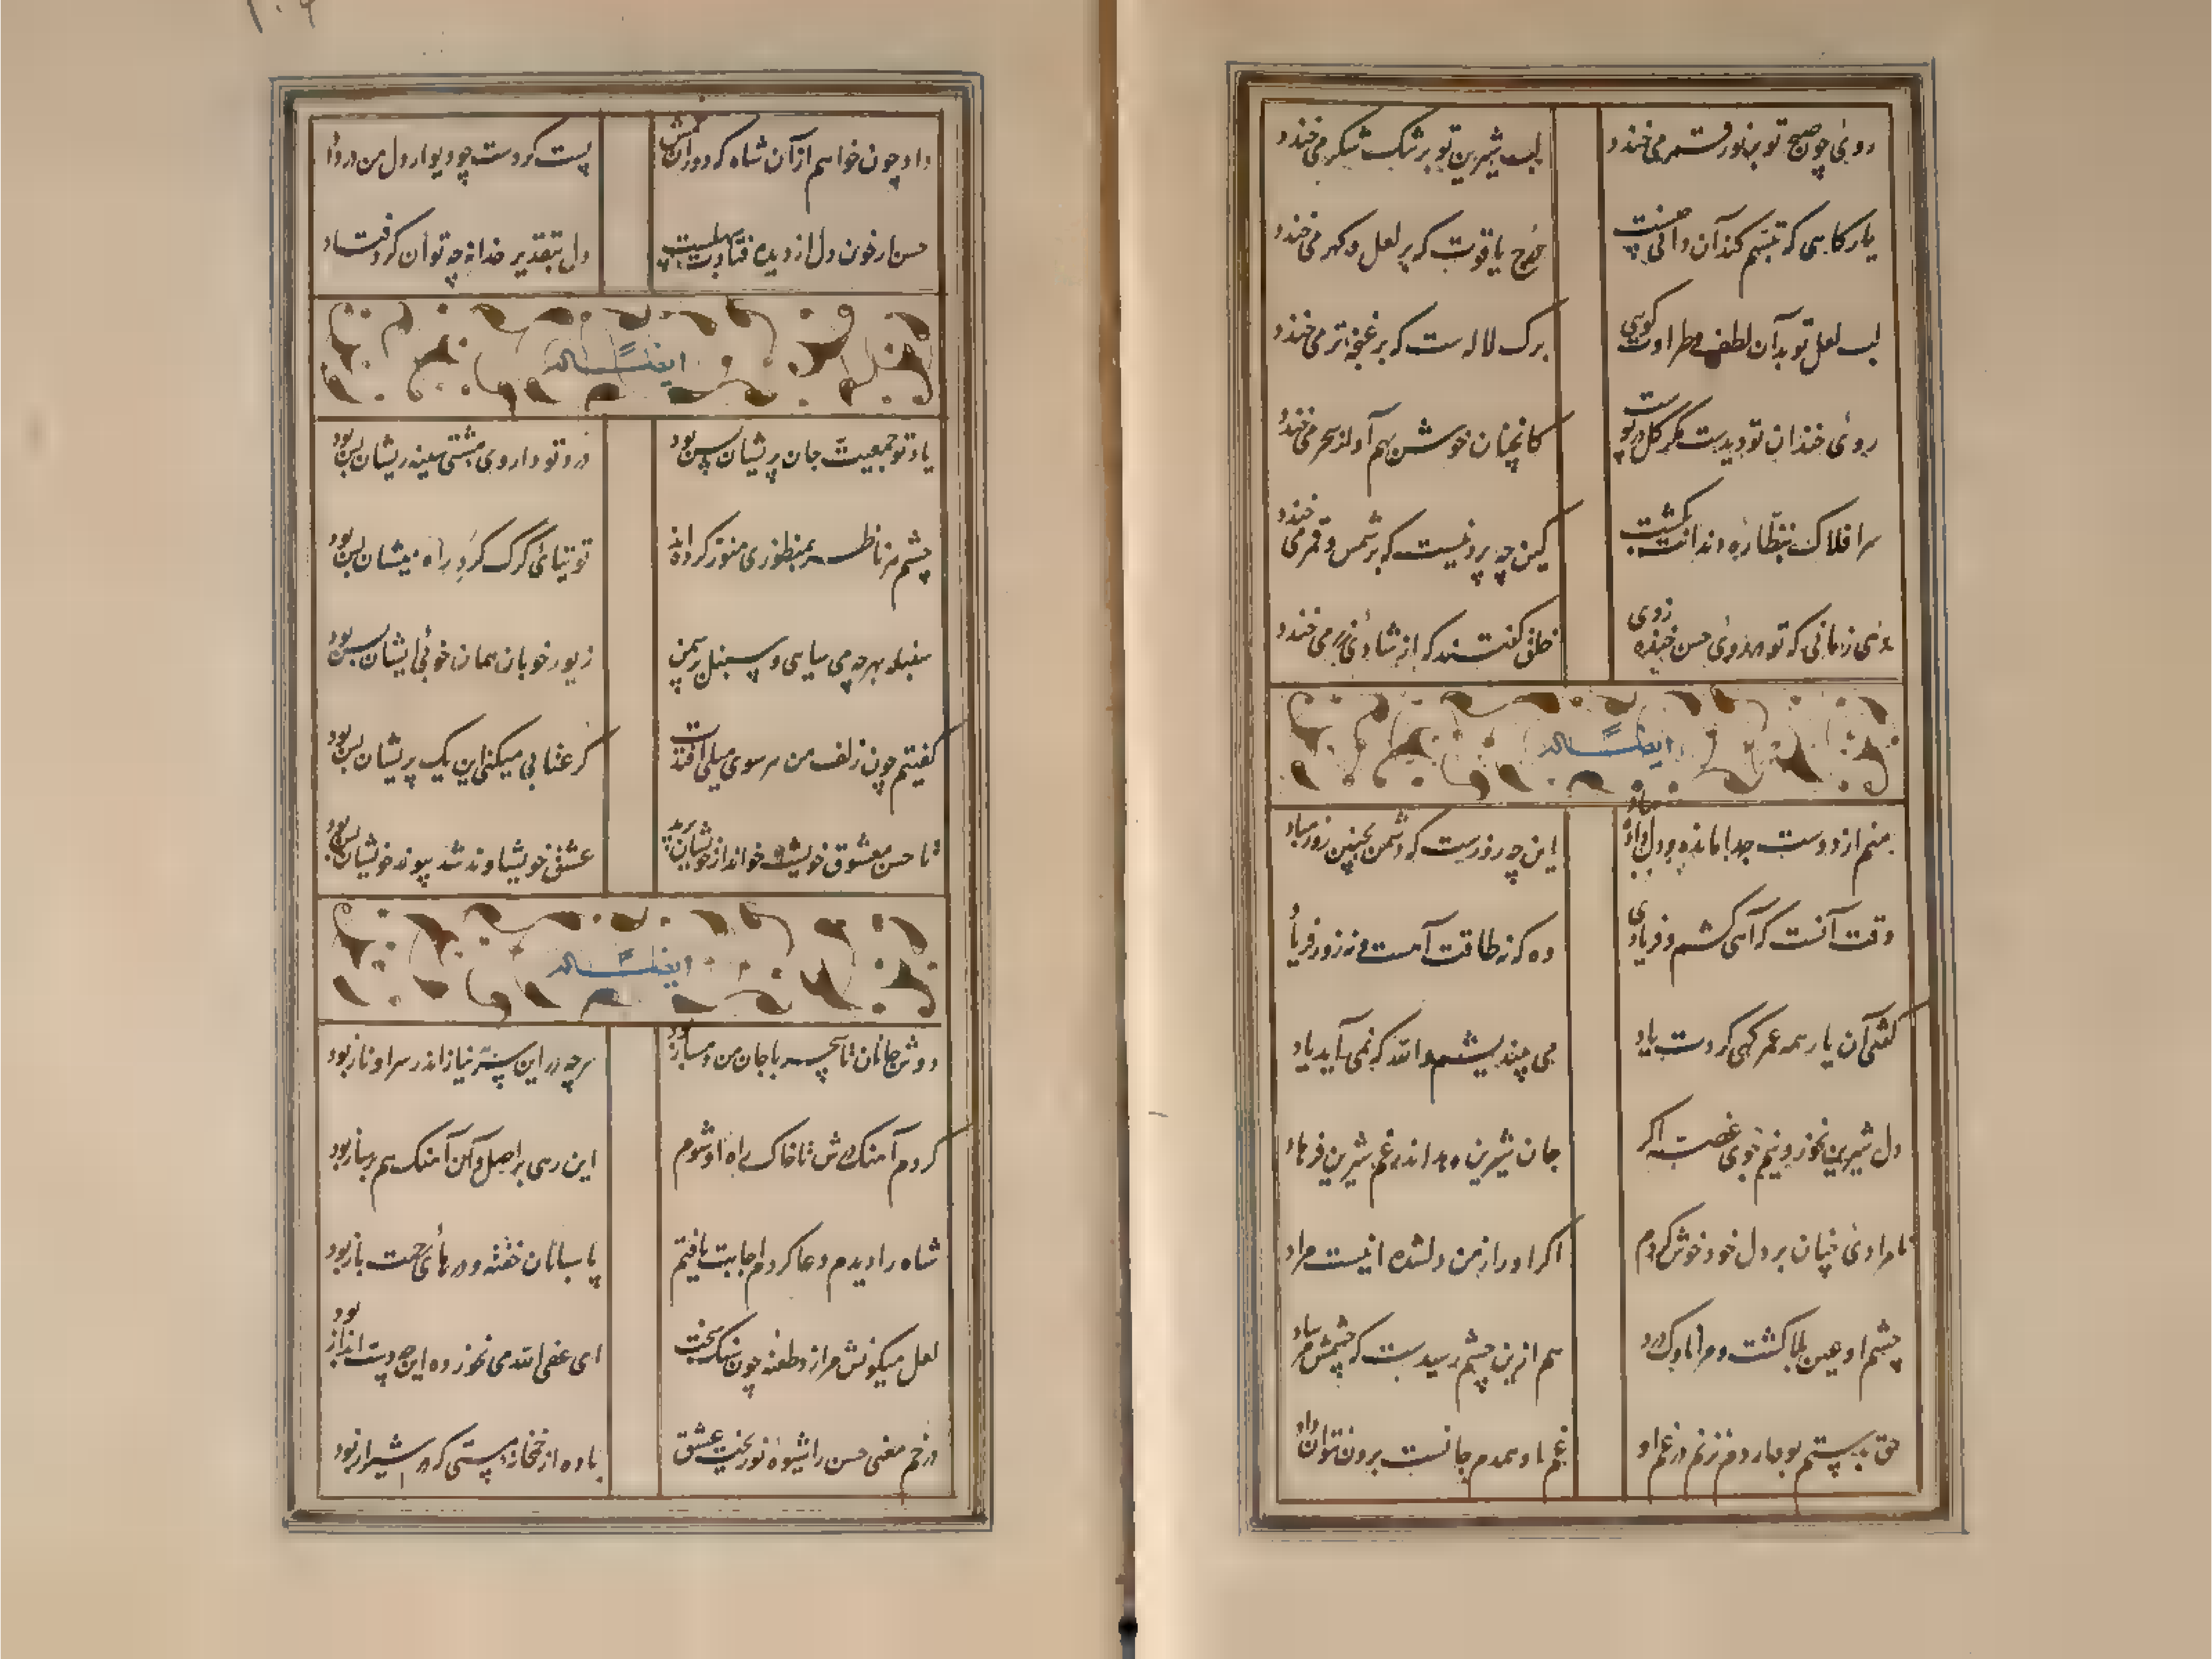 روی چون صبح تو بر نور قمر می‌خندد
لب شیرین تو بر تنگ شکر می‌خندد
یار گاهی که تبسم کند آن دانی چیست
درج یاقوت که بر لعل و گهر می‌خندد
لب لعل تو بدان لطف و طراوت گویی
برگ لاله ست که بر غنچه تر می‌خندد
روی خندان تو دیدست مگر گل در
کانچنان خوش بهم آورد سحر می‌خندد
سر افلاک بنظاره ندانست بگشت
کین چه بر شمس و قمر می خندد
زمانی که تو در روی حسن خنده زدی
خلق گفتند که از شادی می‌خندد
ایضاً له
منم از دوست جدا مانده و دل داده بباد
این چه روزست که دشمن بچنین روز مباد
وقت آنست که آهی کشم و فریادی
وه که نه طاقت آهست و نه زور فریاد
گفتی آن یار همه عمر گهی کردت یاد
می چند بیندیشم والله که نمی‌آید یاد
دل شیرین نخورد نیم جوی غصه اگر
جان شیرین دهد اندر غم شیرین فرهاد
نامرادی چنان بر دل خود خوش کردم
اگر او را ز من دلشده اینست مراد
چشم او عین بلا گشت و مرا ناوک زد
هم ازین چشم رسیدست که چشمش مرساد
حق پرستم بوفا دم نزنم در غم او
غم او همدم جانست برون نتوان داد
داد چون خواهم از آن شاه که دورانش
پست کردست چو دیوار دل من
حسن ار خون دل از دیده فتادت سهلست
دل بتقدیر خدا نه چه توان کرد فتاد
ایضاً له
یاد تو جمعیت جان پریشان بس بود
درد تو داروی مشتی سینه ریشان بس بود
چشم هر ناظر بمنظوری منور کرده‌اند
توتیای گرگ گرد راه میشان بس بود
سنبله بهر چه می سایی و سنبل بر سمن
زیور خوبان همان خوبی ایشان بس بود
گفتیم چون زلف من هر سوی میلی افتدت
گر عتابی میکنی این یک پریشان بس بود
تا حسن معشوق خویشت خواند از خویشان برید
عشق خویشاوند شد پیوند خویشان بس بود
ایضاً له
دوش جانان تا سحر با جان من دمساز بود
هرچه در این سر نیاز اندر سر او ناز بود
کردم آهنگ رهش تا خاک راه او شوم
این رهی بر اصل و آن آهنگ هم بر ساز بود
شاه را دیدم دعا کردم اجابت یافتم
پاسبانان خفته و درهای رحمت باز بود
لعل میگونش مرا زد طعنه چون سنگ سخت
ای عفی الله می نخورده این چه دست انداز بود
در خم معنی حسن را شیره نو ریخت عشق
باده از خمخانه مستی که در شیراز بود